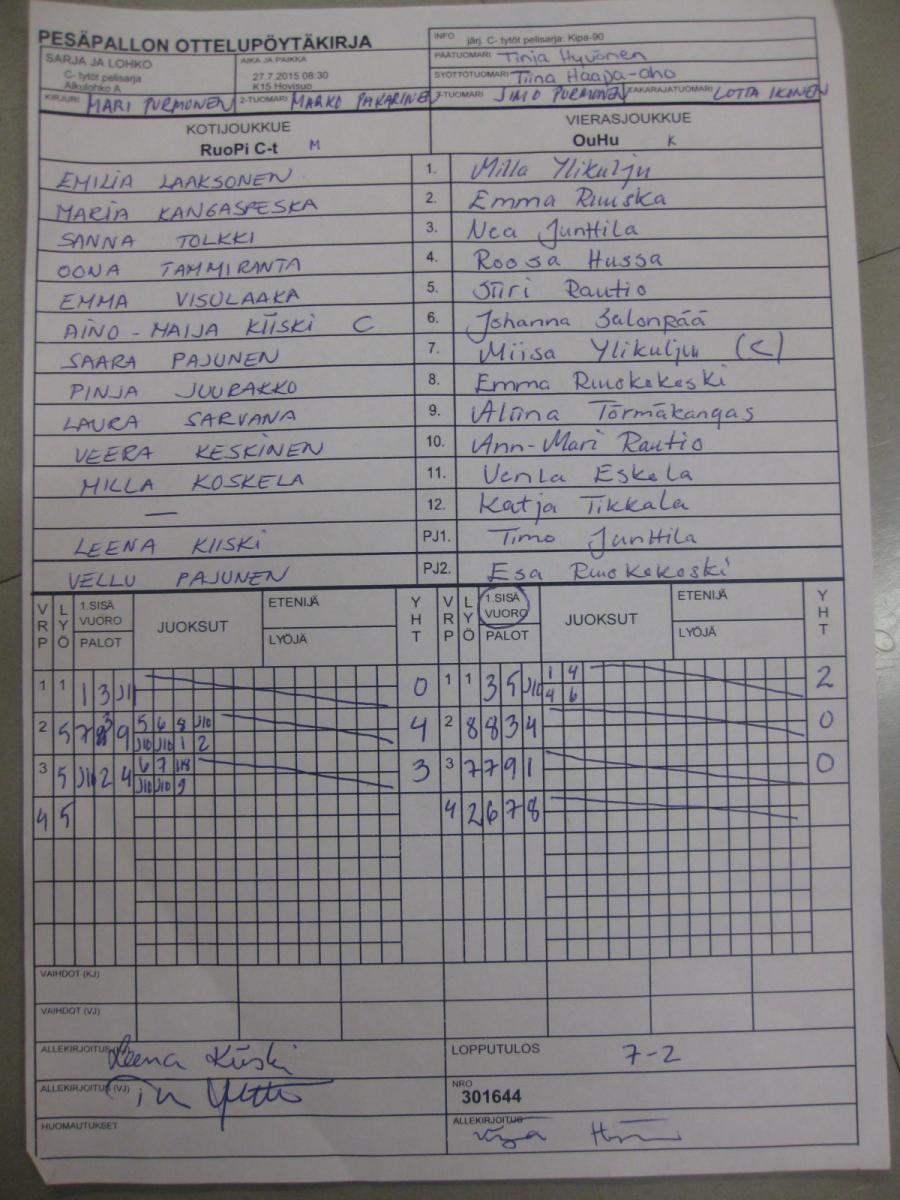 PESÄPALLON OTTELUPÖYTÄKIRJA
INFO järj. C- tytöt pelisarja: Kipa-90
SARJA JA LOHKO
C- tytöt pelisarja
Alkulohko A
AIKA JA PAIKKA
27.7.2015 08:30
K15 Hovisuo
PÄÄTUOMARI Tinja Hyvönen
SYÖTTÖTUOMARI Tiina Haapa-aho
KIRJURI MARI PURMONEN 2-TUOMARI MARKO PAKARINEN 3-TUOMARI SIMO PURMONEN TAKARAJATUOMARI LOTTA IKONEN
KOTIJOUKKUE VIERASJOUKKUE
RuoPi C-t M OuHu K
EMILIA LAAKSONEN 1. Milla Ylikulju
MARIA KANGASPESKA 2. Emma Ruuska
SANNA TOLKKI 3. Nea Junttila
OONA TAMMIRANTA 4. Roosa Hussa
EMMA VISULAAKA 5. Siiri Rautio
AINO-MAIJA KIISKI C 6. Johanna Salonpää
SAARA PAJUNEN 7. Miisa Ylikulju (C)
PINJA JUURAKKO 8. Emma Ruokokoski
LAURA SARVANA 9. Aliina Törmäkangas
VEERA KESKINEN 10. Ann-Mari Rautio
MILLA KOSKELA 11. Venla Eskola
— 12. Katja Tikkala
LEENA KIISKI PJ1. Timo Junttila
VELLU PAJUNEN PJ2. Esa Ruokokoski
VRP LYÖ 1.SISÄ VUORO PALOT JUOKSUT ETENIJÄ LYÖJÄ YHT VRP LYÖ 1.SISÄ VUORO PALOT JUOKSUT ETENIJÄ LYÖJÄ YHT
1 1 1 3 J11 0 1 1 3 5 J10 1 4 2
4 6
2 5 7 3 9 5 6 8 J10 4 2 8 8 3 4 0
J10 J10 1 2
3 5 J10 2 4 6 7 8 3 3 7 7 9 1 0
J10 J10 9
4 5 4 2 6 7 8
VAIHDOT (KJ)
VAIHDOT (VJ)
ALLEKIRJOITUS (KJ) Leena Kiiski LOPPUTULOS 7-2
ALLEKIRJOITUS (VJ) NRO
301644
HUOMAUTUKSET ALLEKIRJOITUS